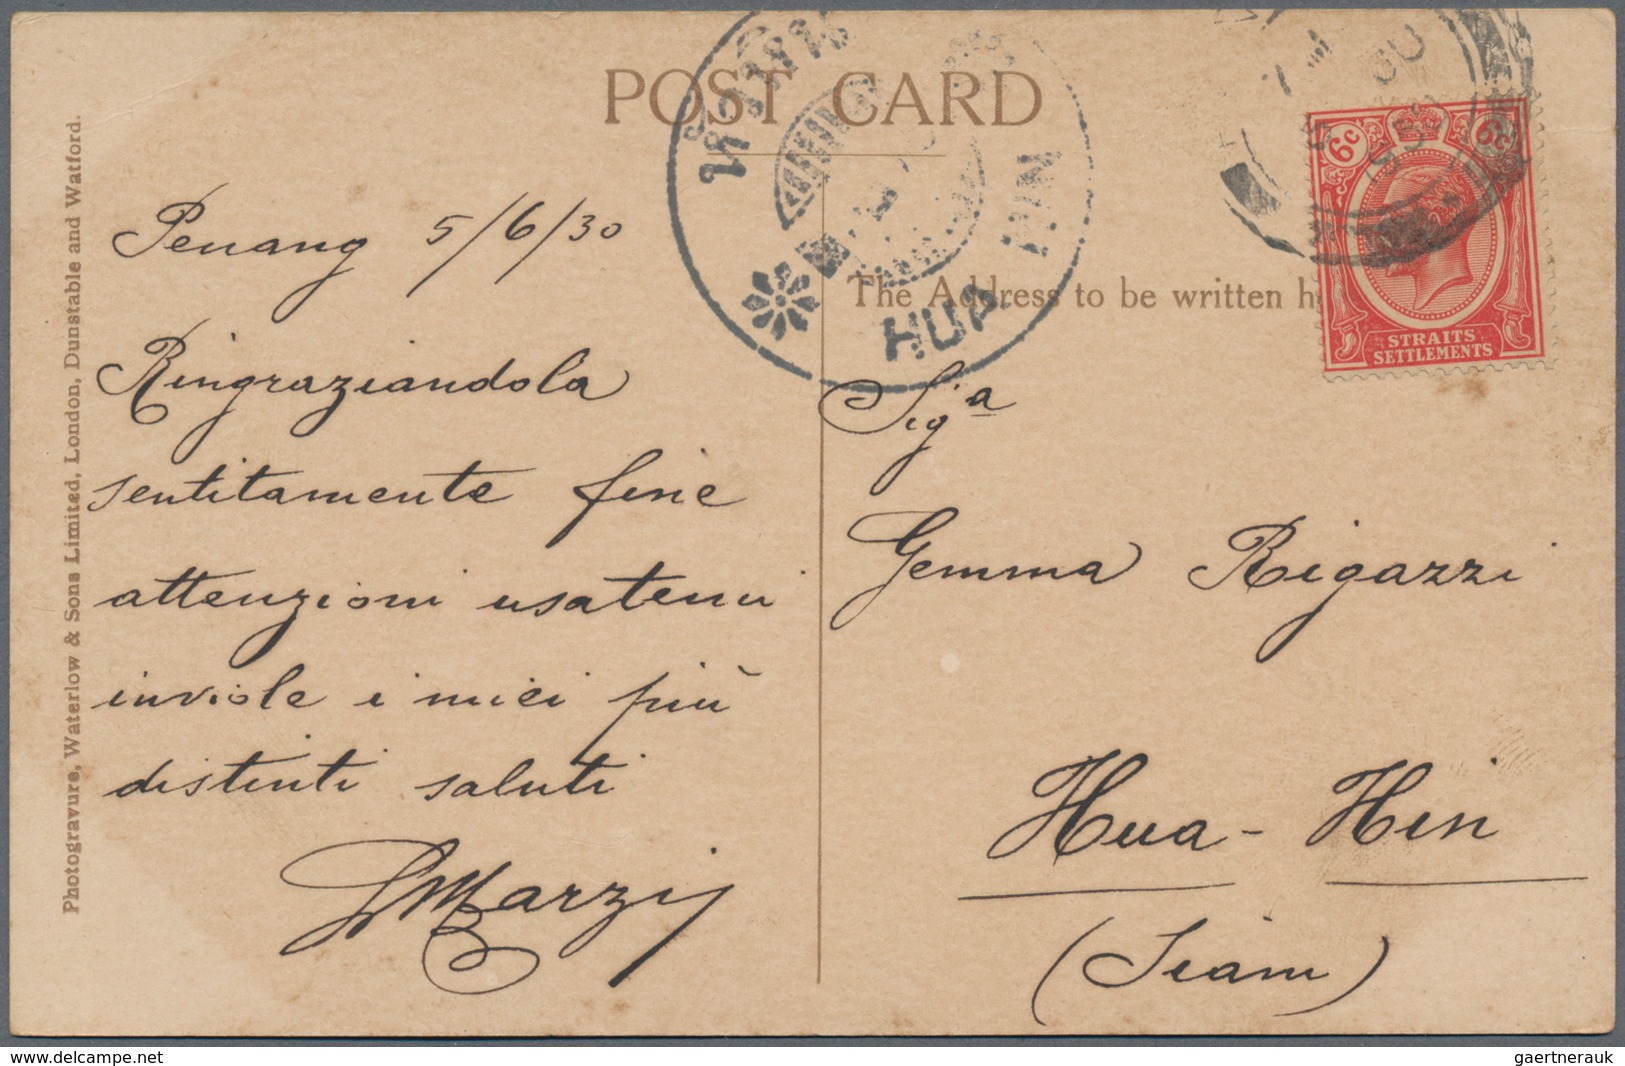 POST CARD
หัวหิน
HUA HIN
The Address to be written h
6c 6c
STRAITS
SETTLEMENTS
Photogravure, Waterlow & Sons Limited, London, Dunstable and Watford.
Penang 5/6/30
Ringraziandola
sentitamente fine
attenzioni usatemi
inviole i miei più
distinti saluti
Marzij
Sigª
Gemma Rigazzi
Hua-Hin
(Siam)
delcampe.net
gaertnerauk